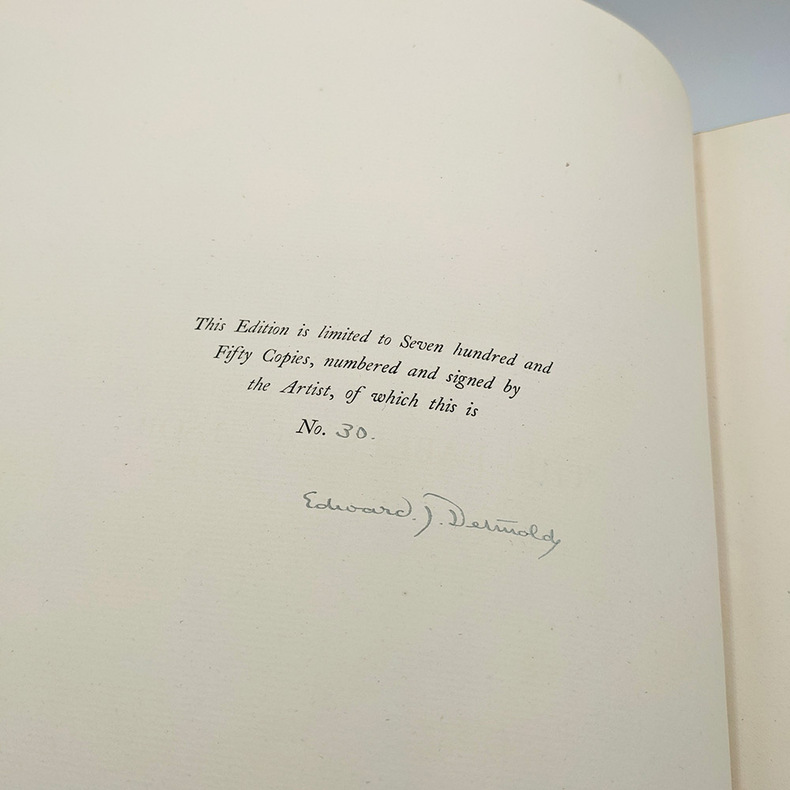 This Edition is limited to Seven hundred and
Fifty Copies, numbered and signed by
the Artist, of which this is
No. 30.
Edward. J. Detmold